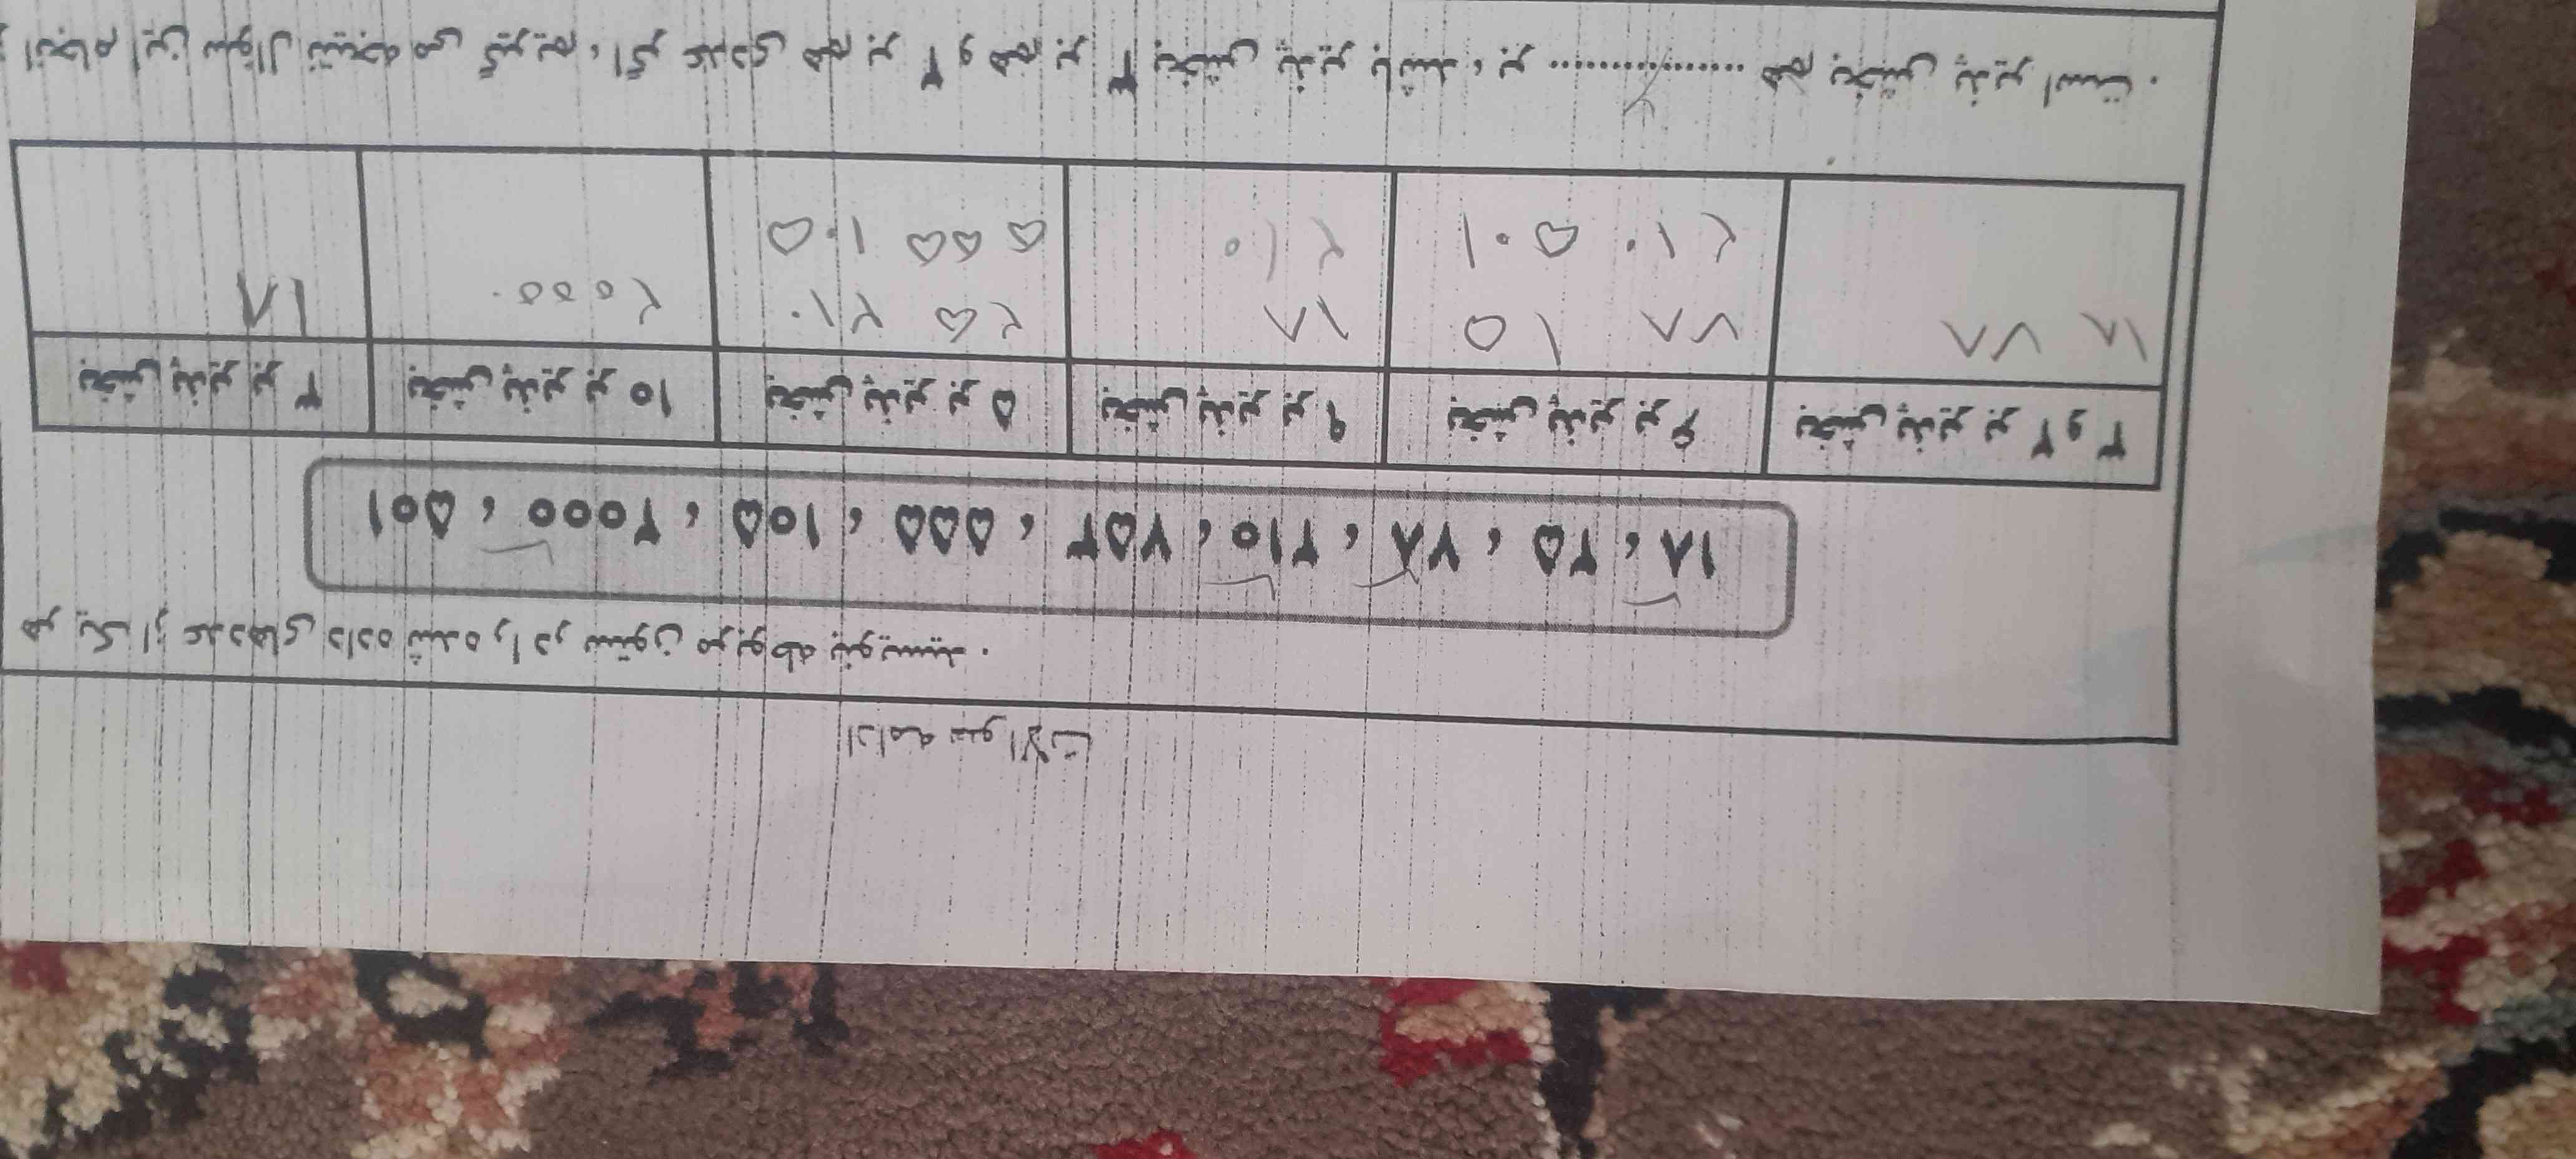 ادامه سوالات
هر یک از عددهای داده شده را در ستون مربوطه بنویسید .
۱۸ ، ۲۵ ، ۷۸ ، ۲۱۰ ، ۷۵۳ ، ۵۵۵ ، ۱۰۵ ، ۲۰۰۰ ، ۵۰۱
بخش پذیر بر ۳ بخش پذیر بر ۱۰ بخش پذیر بر ۵ بخش پذیر بر ۹ بخش پذیر بر ۶ بخش پذیر بر ۲ و ۳
۱۸ ۲۰۰۰ ۲۱۰ ۲۵ ۱۸ ۱۵ ۷۸ ۷۸ ۱۸
۱۰۵ ۵۵۵ ۲۱۰ ۵۰۱ ۲۱۰
انجام این سوال نتیجه می گیریم ، اگر عددی هم بر ۲ و هم بر ۳ بخش پذیر باشد ، بر ...۶... هم بخش پذیر است .